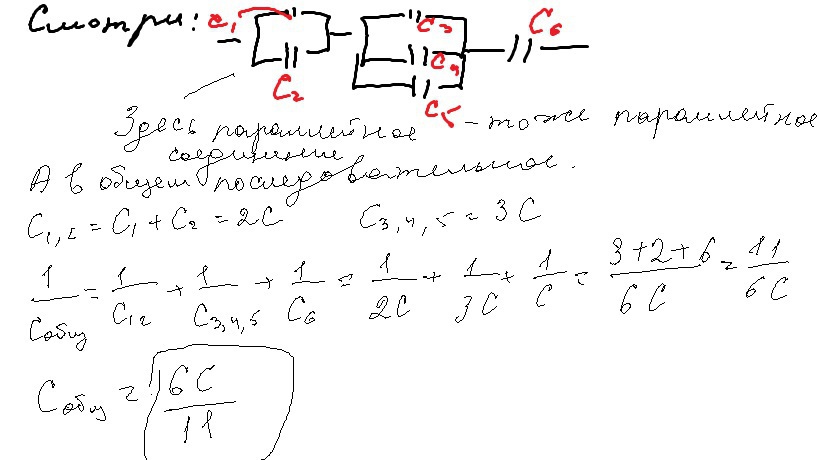 Смотри: C₁ C₃ C₆
C₂ C₄
C₅
Здесь параллейное - тоже параллейное
соединение
А в общем последовательное.
C₁,₂ = C₁ + C₂ = 2C C₃,₄,₅ = 3C
1/Cобщ = 1/C₁₂ + 1/C₃,₄,₅ + 1/C₆ = 1/2C + 1/3C + 1/C = (3+2+6)/6C = 11/6C
Cобщ = 6C/11